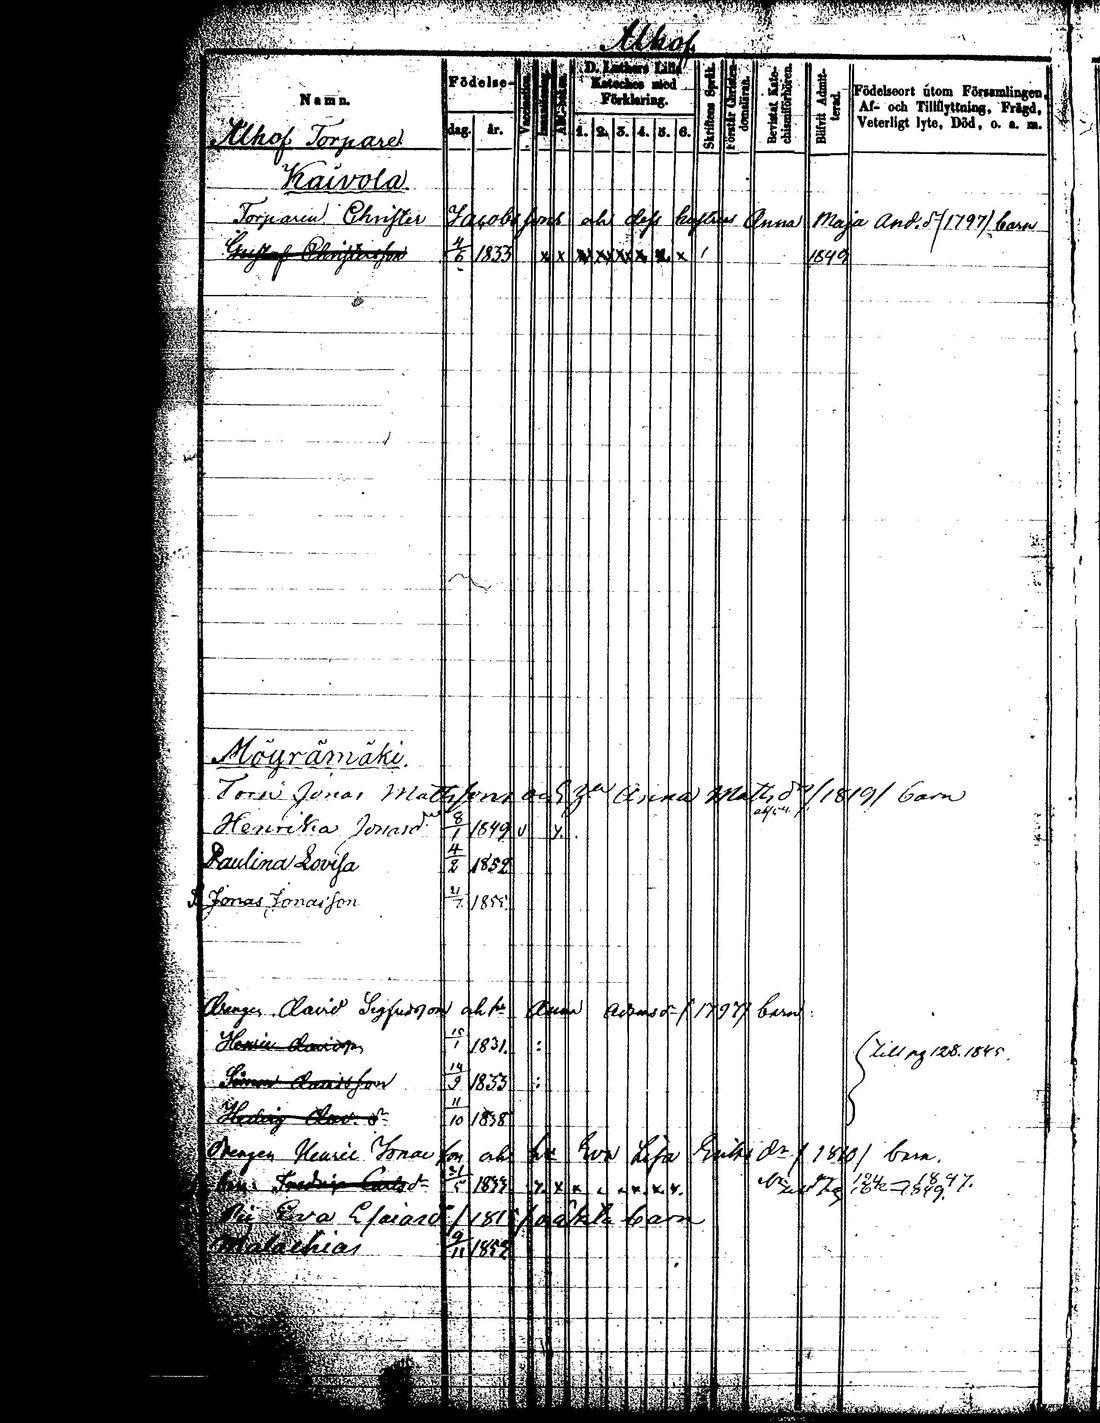 Alhof
Namn.
Födelse-
dag. år.
ABC-boken.
D. Luthers Lilla Kateches med Förklaring.
1. 2. 3. 4. 5. 6.
Skriftens Språk.
Förstår Christendomsläran.
Bevistat Katechismiförhören.
Blifvit Admitterad.
Födelseort utom Församlingen, Af- och Tillflyttning, Frägd, Veterligt lyte, Död, o. a. m.
Alhof Torpare
Kaivola.
Torparen Christer Jacobssons och dess hustrus Anna Maja And.dr (1797) barn
Gustaf Christersson 4/6 1833 x x x x x x x x 1849
Möyrämäki.
Jonas Mathssons Anna Maths dr /1819/ barn
Henrika Jonasdr 8/1 1849
Paulina Lovisa 4/2 1852
Jonas Jonasson 21/7 1855
Drengen David Sigfredsson och hu Anna Adamsdr (1797) barn
Henric Davidss. 15/1 1831.
Till pg 128. 1845.
Simon Davidsson 14/9 1833
Hedvig Dav. dr 11/10 1838
Drengen Henric Jonasson och hu Eva Lisa Eriks dr / 1810/ barn.
Fredrica Carlsdr 21/5 1833 x x x x 1847. 1849.
Pii Eva Esaiasdr /1815/ oäkta barn
Malachias 9/11 1852